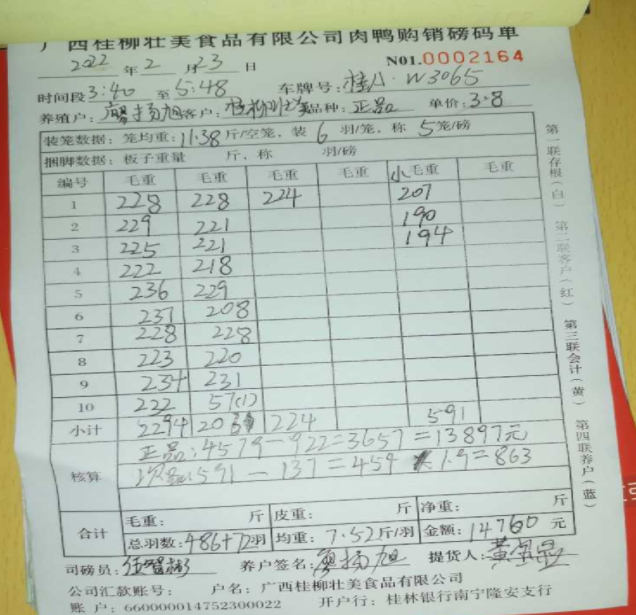 广西桂柳壮美食品有限公司肉鸭购销磅码单
2022 年 2 月 23 日 N01.0002164
时间段 3:40 至 5:48 车牌号: 桂A·W3065
养殖户: 廖扬旭 客户: 桂柳壮美 品种: 正品 单价: 3.8
装笼数据: 笼均重: 11.38 斤/空笼, 装 6 羽/笼, 称 5 笼/磅
捆脚数据: 板子重量 斤, 称 羽/磅
编号 毛重 毛重 毛重 毛重 小毛重 毛重
1 228 228 224 207
2 229 221 190
3 225 221 194
4 222 218
5 236 229
6 237 208
7 228 228
8 223 220
9 234 231
10 232 57(1)
小计 2294 2061 224 591
核算 正品: 4579-922=3657=13897元
次品: 591-137=454×1.9=863
合计 毛重: 斤 皮重: 斤 净重: 斤
总羽数: 486+72羽 均重: 7.52斤/羽 金额: 14760 元
司磅员: 养户签名: 廖扬旭 提货人:
公司汇款账号: 户名: 广西桂柳壮美食品有限公司
账 户: 660000014752300022 开户行: 桂林银行南宁隆安支行
第一联存根(白) 第二联客户(红) 第三联会计(黄) 第四联养户(蓝)